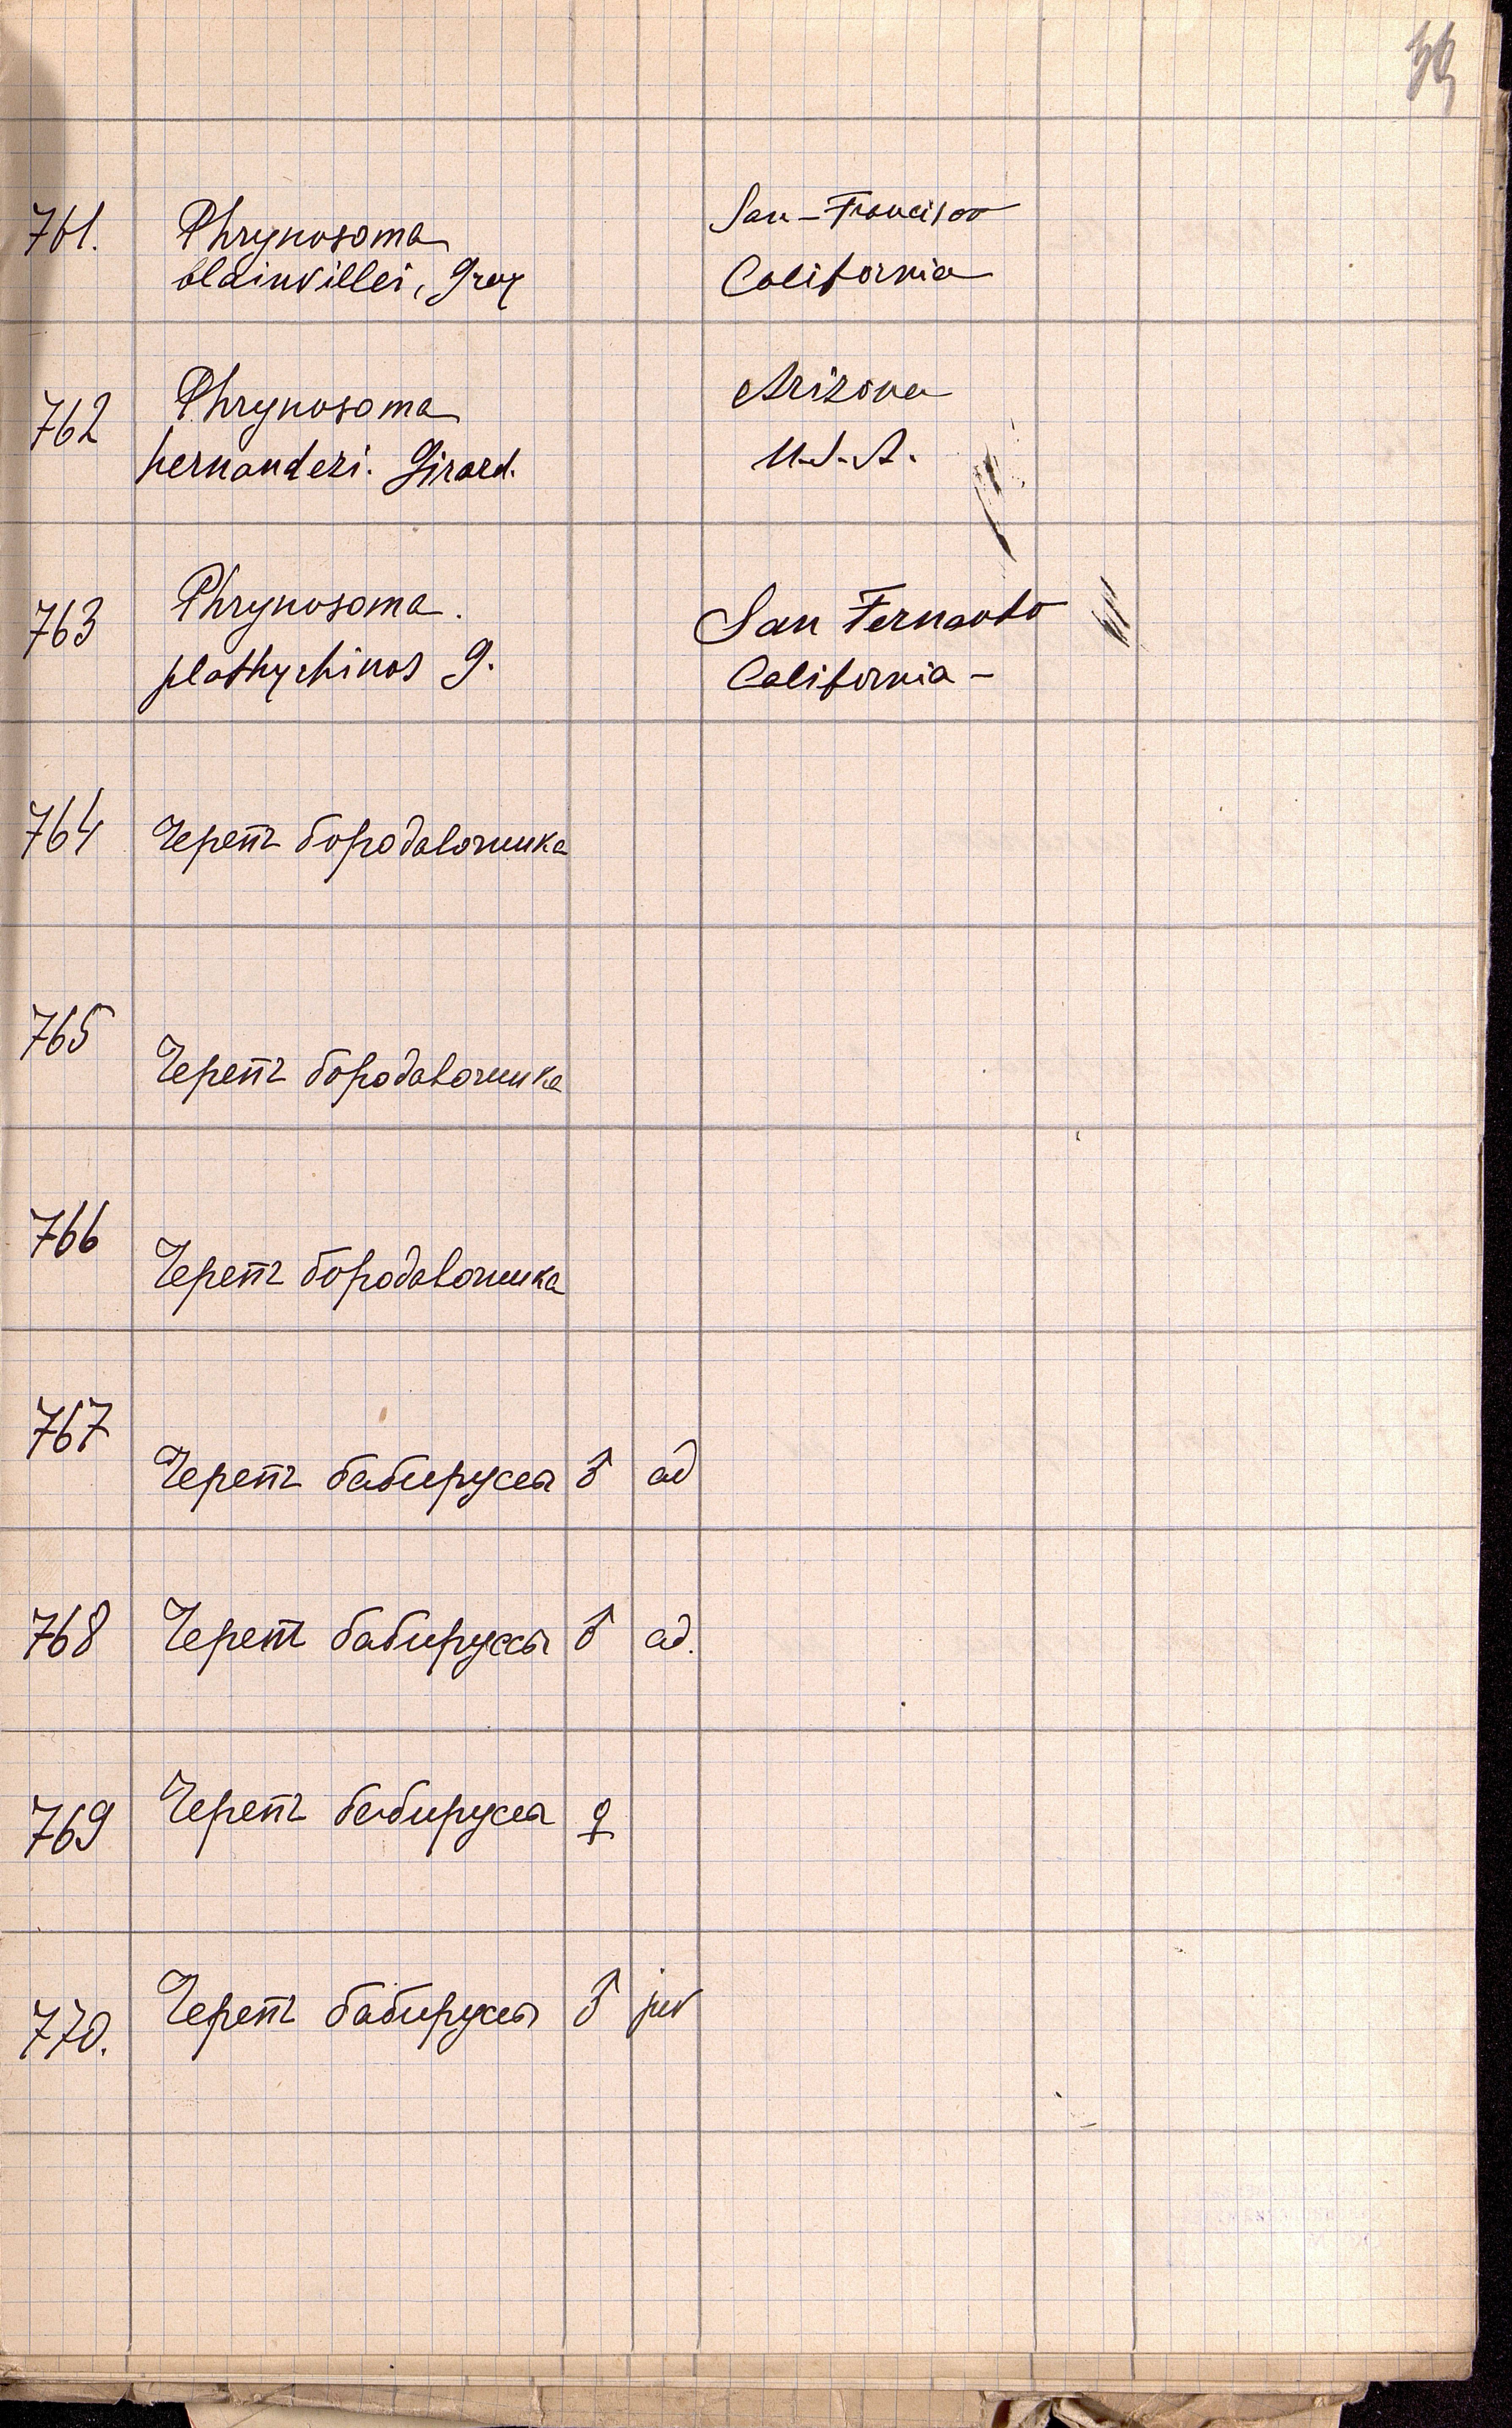 39
761. Phrynosoma San-Francisco
blainvillei, Gray California
762 Phrynosoma Arizona
hernandezi. Girard. U.S.A.
763 Phrynosoma. San Fernando
plathyrhinos G. California -
764 Черепъ бородавочника
765
Черепъ бородавочника
766
Черепъ бородавочника
767
Черепъ бабирусы ♂ ad
768 Череп бабируссы ♂ ad.
769 Черепъ бабирусы ♀
770. Черепъ бабирусы ♂ juv